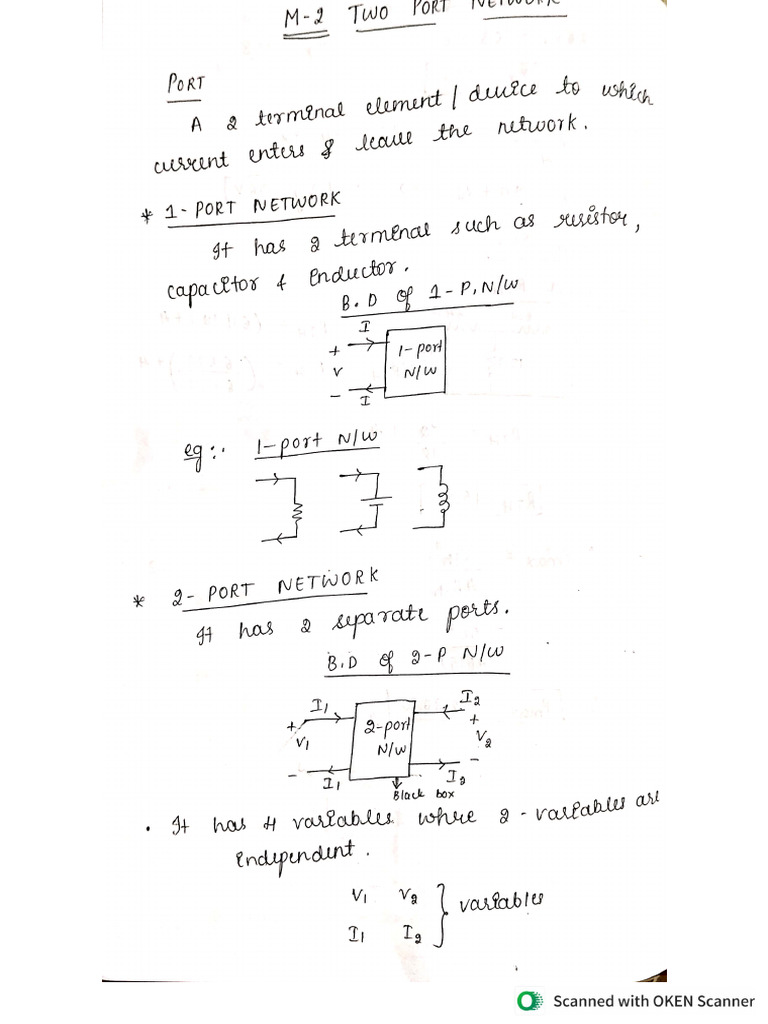 M-2 TWO PORT NETWORK
PORT
A 2 terminal element / device to which
current enters & leave the network.
* 1-PORT NETWORK
It has 2 terminal such as resistor,
capacitor & inductor.
B.D of 1-P, N/W
I
+
V
-
I
1-port
N/W
eg:- 1-port N/W
* 2-PORT NETWORK
It has 2 separate ports.
B.D of 2-P N/W
I1
+
V1
-
I1
2-port
N/W
I2
+
V2
-
I2
Black box
. It has 4 variables where 2-variables are
independent.
V1 V2
I1 I2
} variables
Scanned with OKEN Scanner